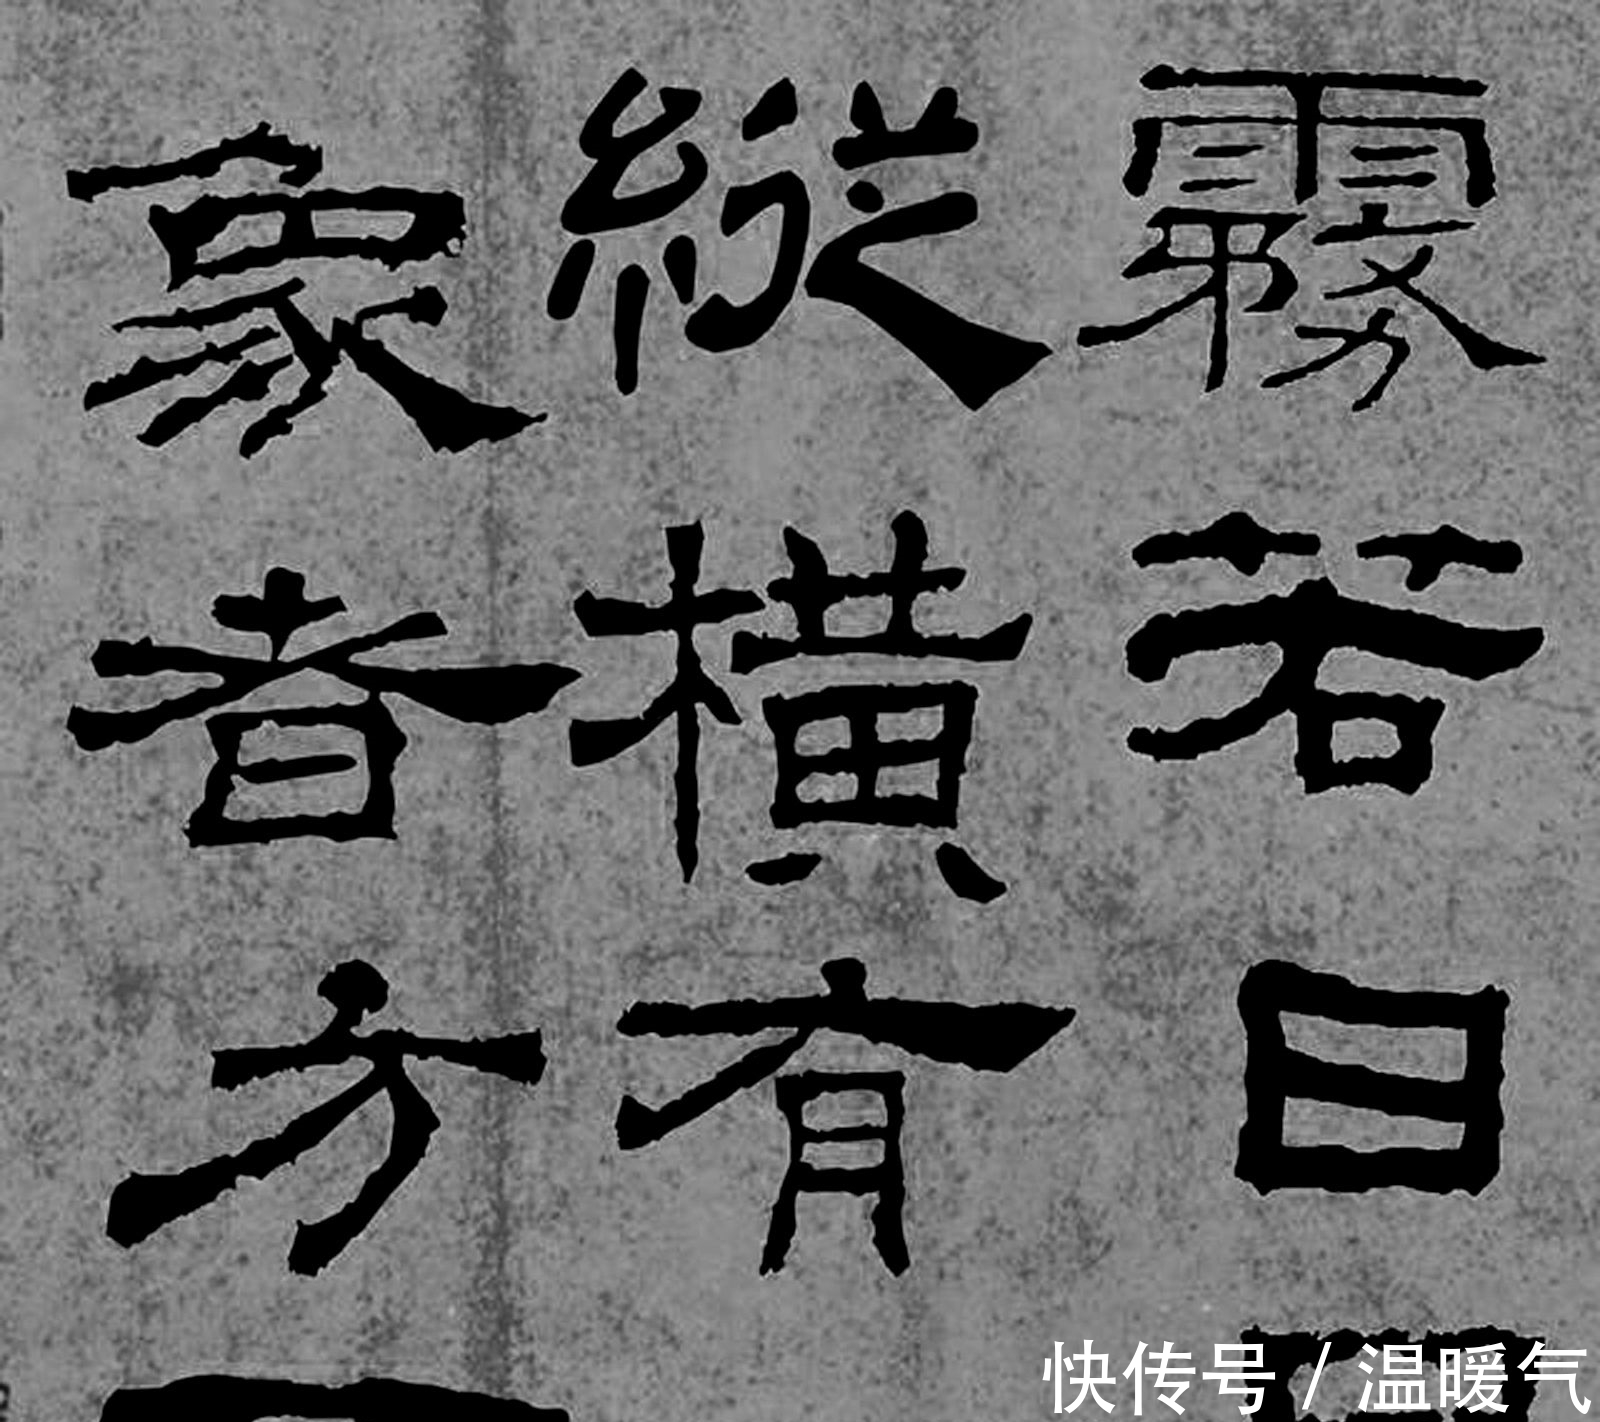 霧若日
縱橫有
象者方
快传号/温暖气